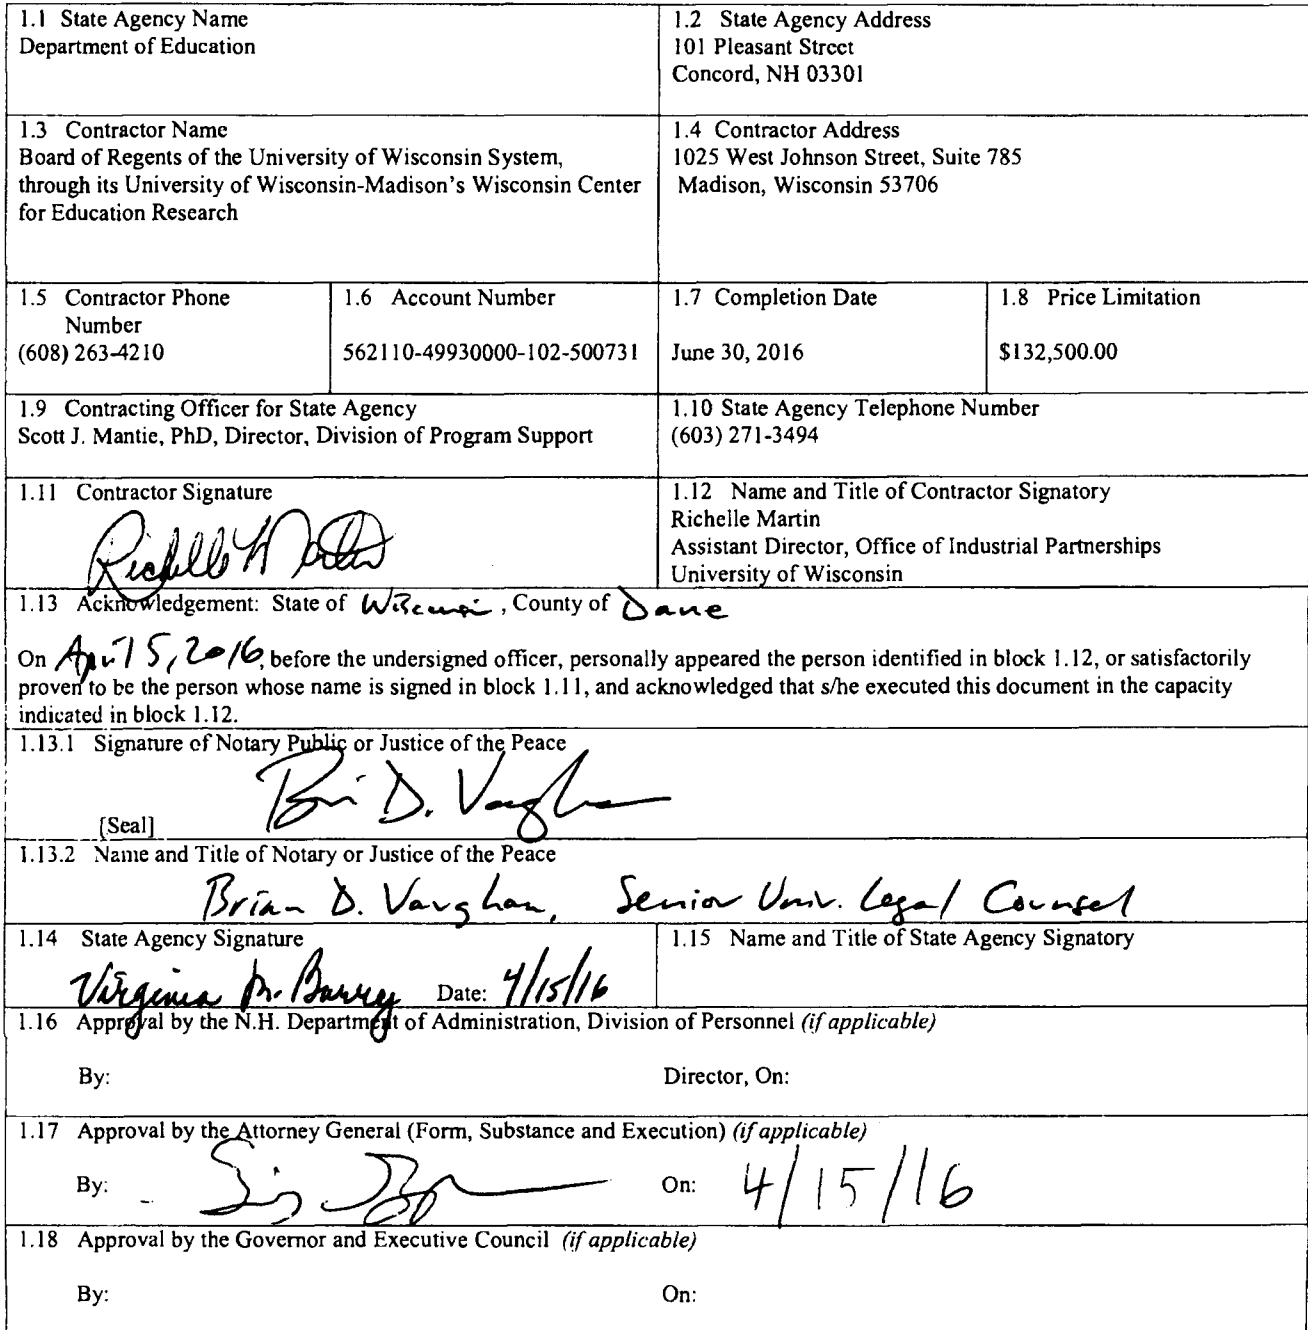 1.1 State Agency Name
Department of Education
1.2 State Agency Address
101 Pleasant Street
Concord, NH 03301
1.3 Contractor Name
Board of Regents of the University of Wisconsin System,
through its University of Wisconsin-Madison's Wisconsin Center
for Education Research
1.4 Contractor Address
1025 West Johnson Street, Suite 785
Madison, Wisconsin 53706
1.5 Contractor Phone
Number
(608) 263-4210
1.6 Account Number
562110-49930000-102-500731
1.7 Completion Date
June 30, 2016
1.8 Price Limitation
$132,500.00
1.9 Contracting Officer for State Agency
Scott J. Mantie, PhD, Director, Division of Program Support
1.10 State Agency Telephone Number
(603) 271-3494
1.11 Contractor Signature
Richelle Martin
1.12 Name and Title of Contractor Signatory
Richelle Martin
Assistant Director, Office of Industrial Partnerships
University of Wisconsin
1.13 Acknowledgement: State of Wisconsin, County of Dane
On April 5, 2016, before the undersigned officer, personally appeared the person identified in block 1.12, or satisfactorily
proven to be the person whose name is signed in block 1.11, and acknowledged that s/he executed this document in the capacity
indicated in block 1.12.
1.13.1 Signature of Notary Public or Justice of the Peace
Bri D. Vaugh
[Seal]
1.13.2 Name and Title of Notary or Justice of the Peace
Brian D. Vaughan, Senior Univ. Legal Counsel
1.14 State Agency Signature
Virginia M. Barry Date: 4/15/16
1.15 Name and Title of State Agency Signatory
1.16 Approval by the N.H. Department of Administration, Division of Personnel (if applicable)
By: Director, On:
1.17 Approval by the Attorney General (Form, Substance and Execution) (if applicable)
By: On: 4/15/16
1.18 Approval by the Governor and Executive Council (if applicable)
By: On: